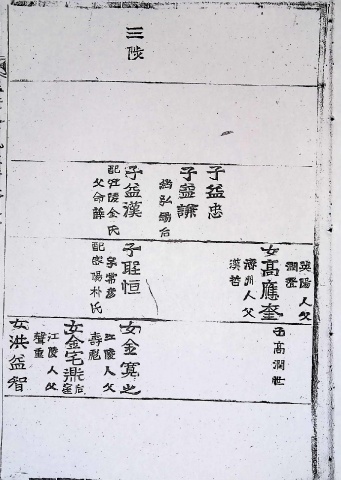 三陟
子益忠
子益謙
出弘錫后
子益漢
配江陵金氏
父命辭
英陽人父
潤
女高應奎
濟州人父
漢哲
子珵恒
字常彦
配密陽朴氏
子高潤世
女金寬之
江陵人父
壽彪
女金宅鼎
江陵人父
聲重
女洪益智